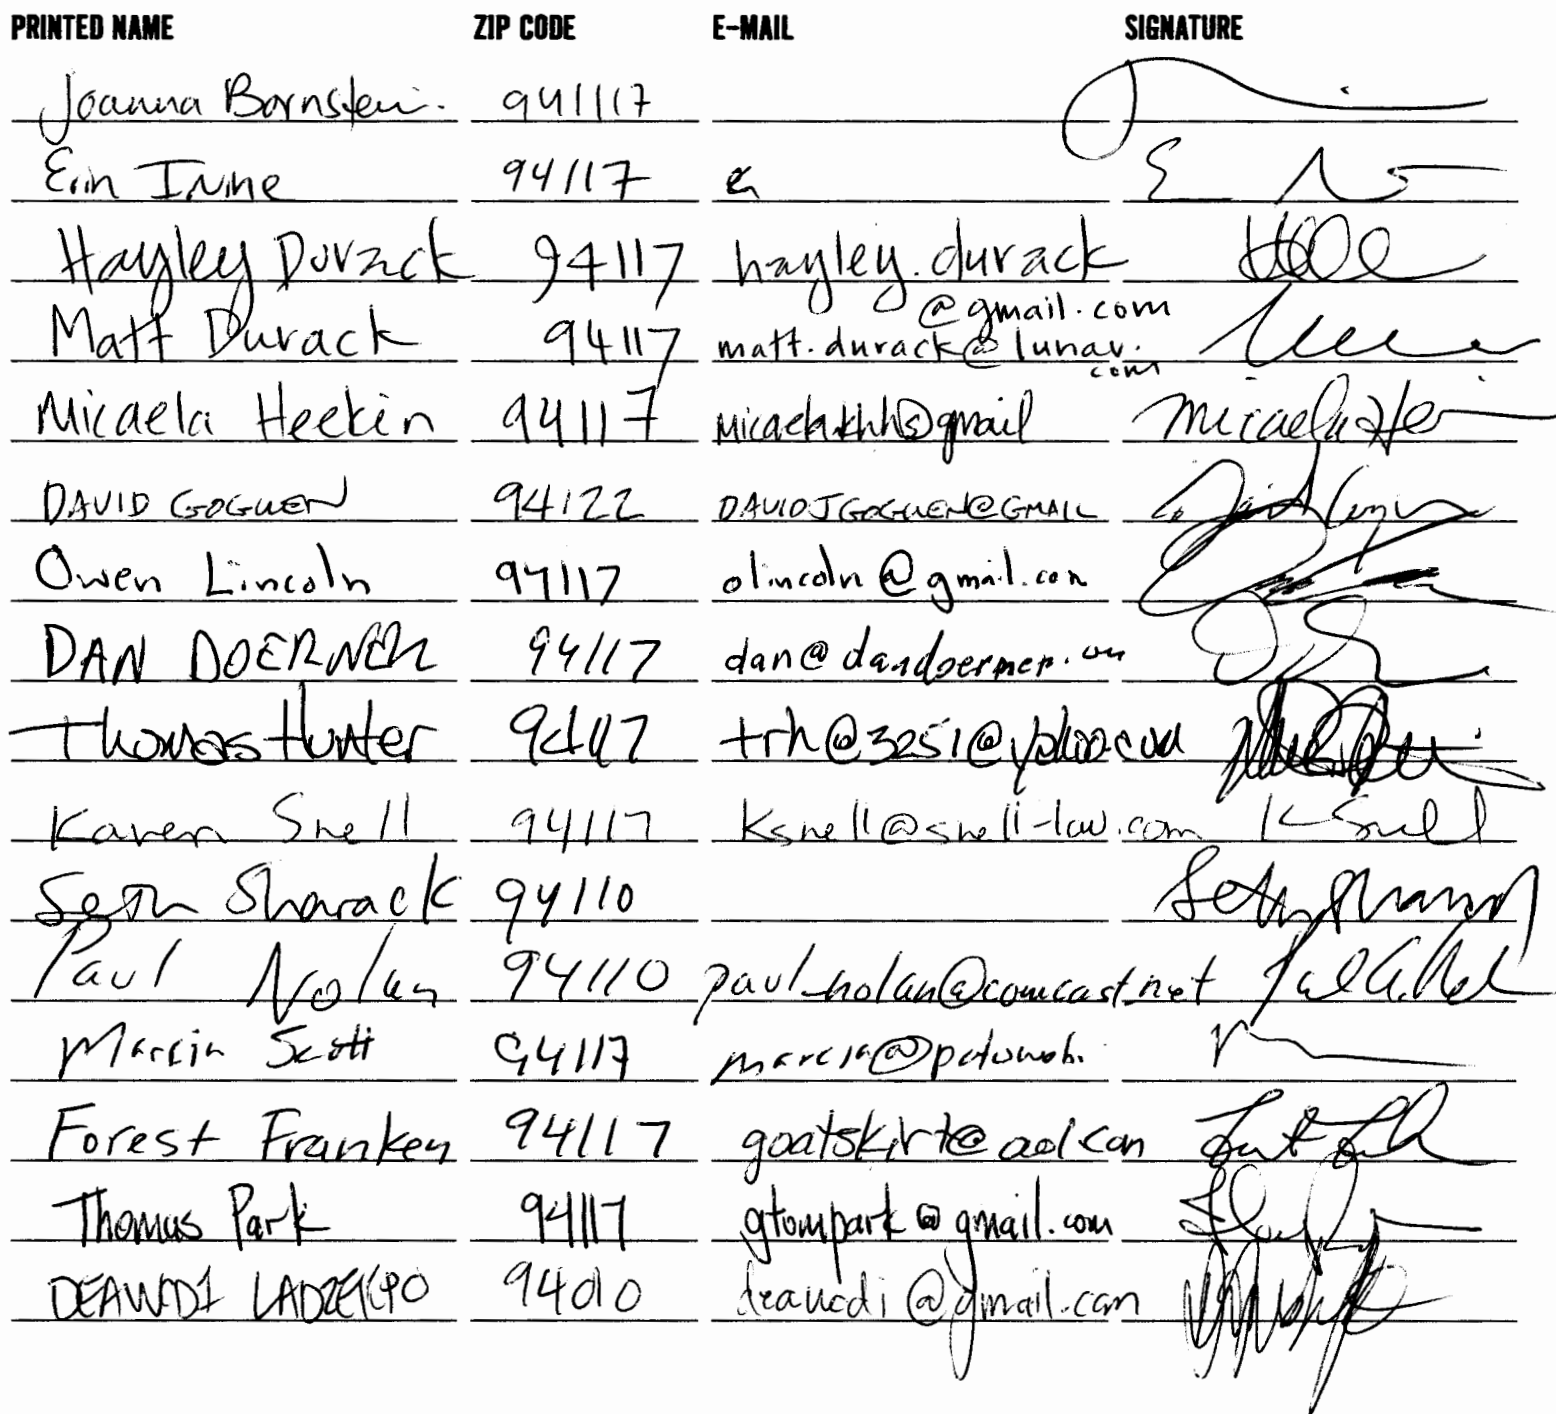 PRINTED NAME ZIP CODE E-MAIL SIGNATURE
Joanna Bornstein 941117
Erin Irvine 94117 e
Hayley Durack 94117 hayley.durack
@gmail.com
Matt Durack 94117 matt.durack@lunar.
com
Micaela Heekin 94117 @gmail Micaela
DAVID GOGUEN 94122 DAVIDJGOGUEN@GMAIL
Owen Lincoln 94117 olincoln@gmail.com
DAN DOERNER 94117 dan@dandoerner.com
Thomas Hunter 94117 trh@3251@yahoo.com
Karen Snell 94117 Ksnell@snell-law.com K Snell
Seth Sharack 94110 Seth
Paul Nolan 94110 paul_nolan@comcast.net
Scott 94117
Forest Franken 94117 goatskirt@aol.com
Thomas Park 94117 gtompark@gmail.com
94010 @gmail.com